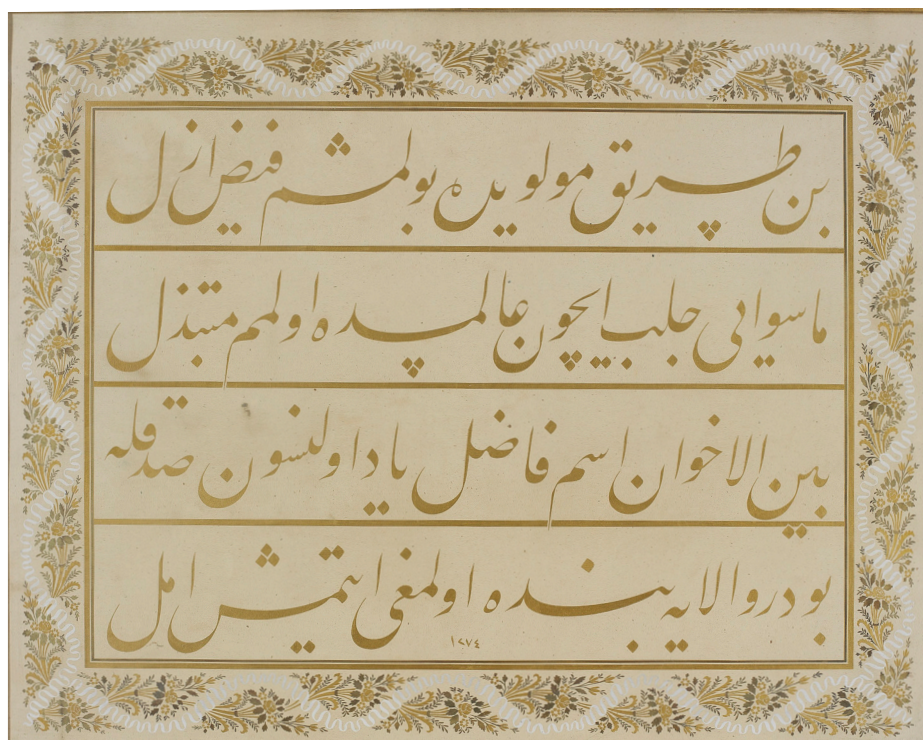 بن طریق مولویده بولمشم فیض ازل
ماسوایی جلب ایچون عالمده اولمم مبتذل
بین الاخوان اسم فاضل یاد اولنسون صدقله
بو در والایه بنده اولمغی ایتمش امل
١٢٧٤